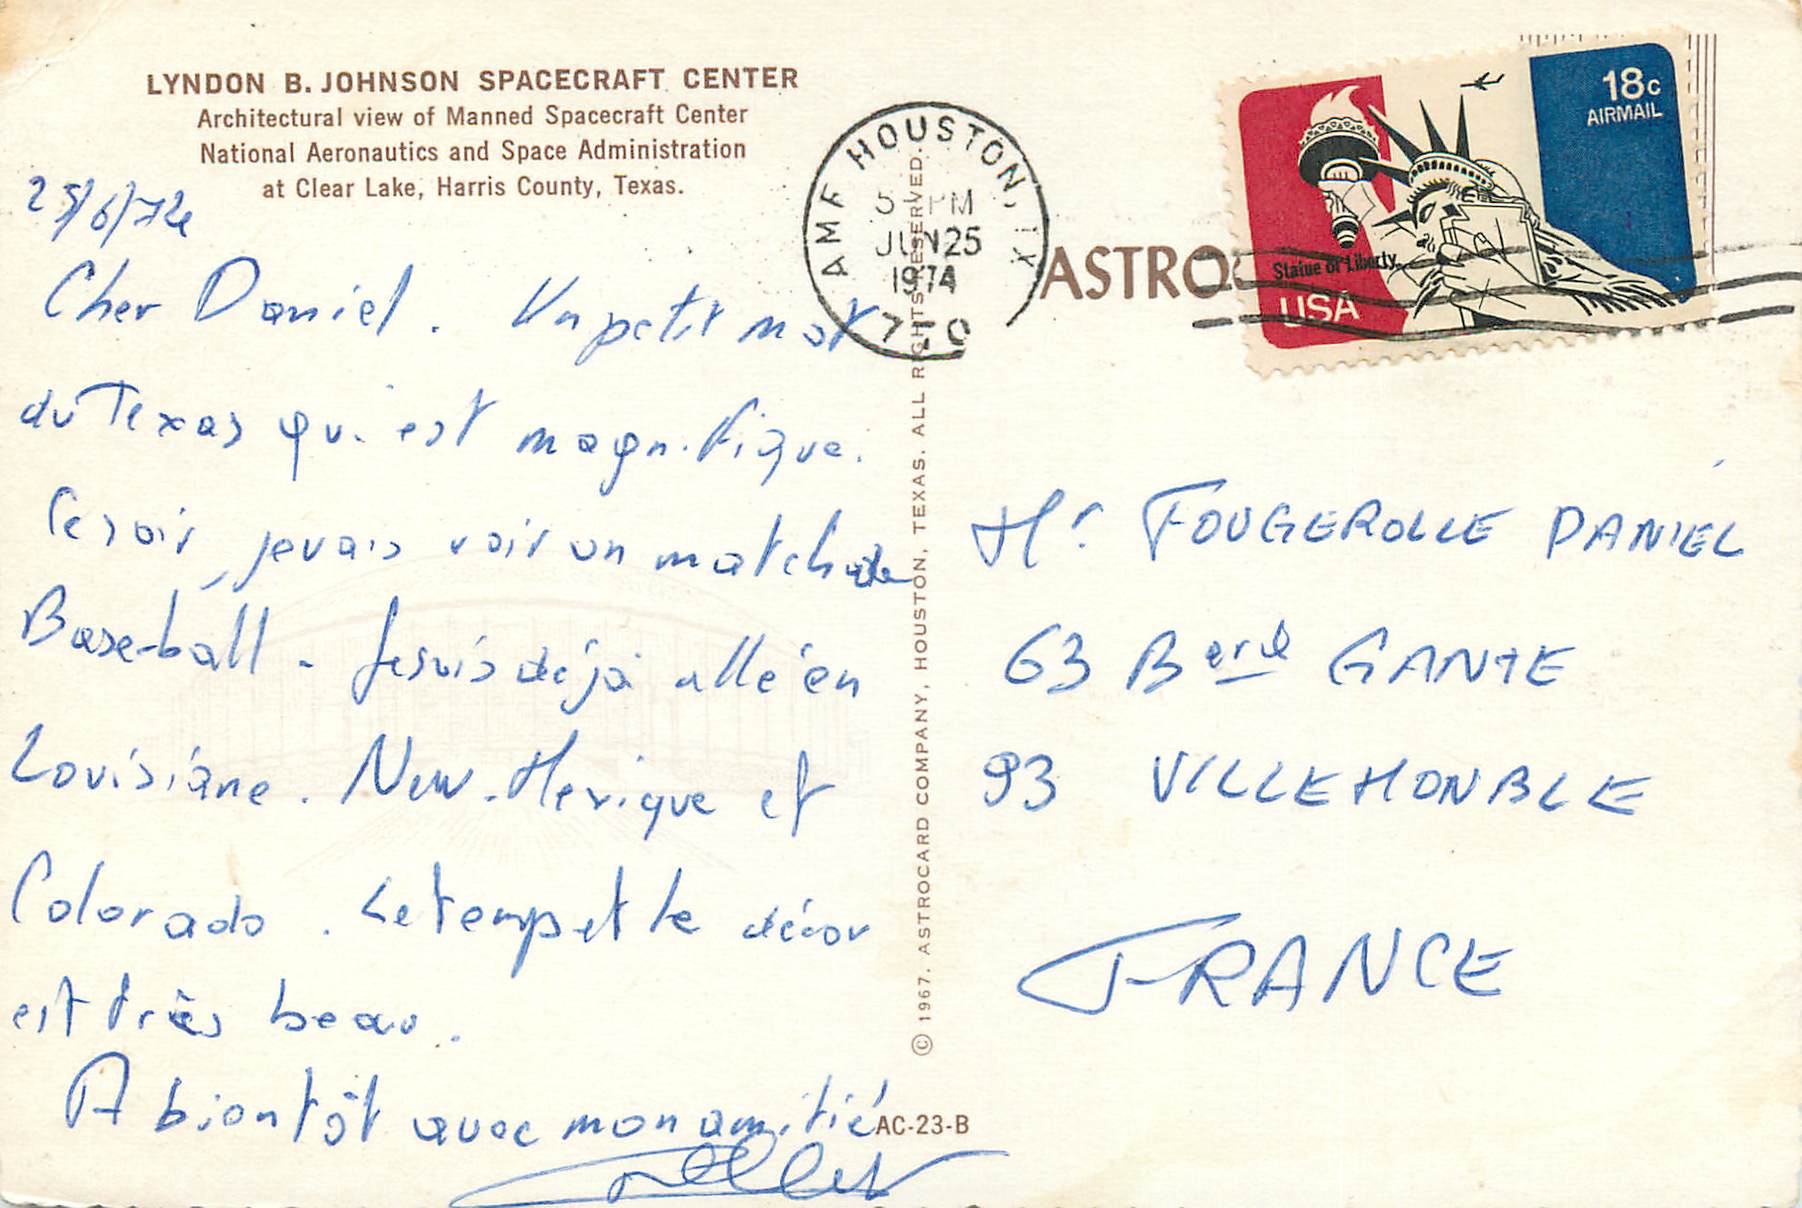 LYNDON B. JOHNSON SPACECRAFT CENTER
Architectural view of Manned Spacecraft Center
National Aeronautics and Space Administration
at Clear Lake, Harris County, Texas.
25/6/74
Cher Daniel. Un petit mot
du Texas qui est magnifique.
Ce soir, je vais voir un match de
Base-ball. Je suis déjà allé en
Louisiane. New-Mexique et
Colorado. Le temps et le décor
est très beau.
A bientôt avec mon amitié
AMF HOUSTON, TX
5 PM
JUN 25
1974
ASTROC
18c
AIRMAIL
Statue of Liberty
USA
© 1967. ASTROCARD COMPANY, HOUSTON, TEXAS. ALL RIGHTS RESERVED.
AC-23-B
Mr FOUGEROLLE DANIEL
63 Bard GANTE
93 VILLEMONBLE
FRANCE